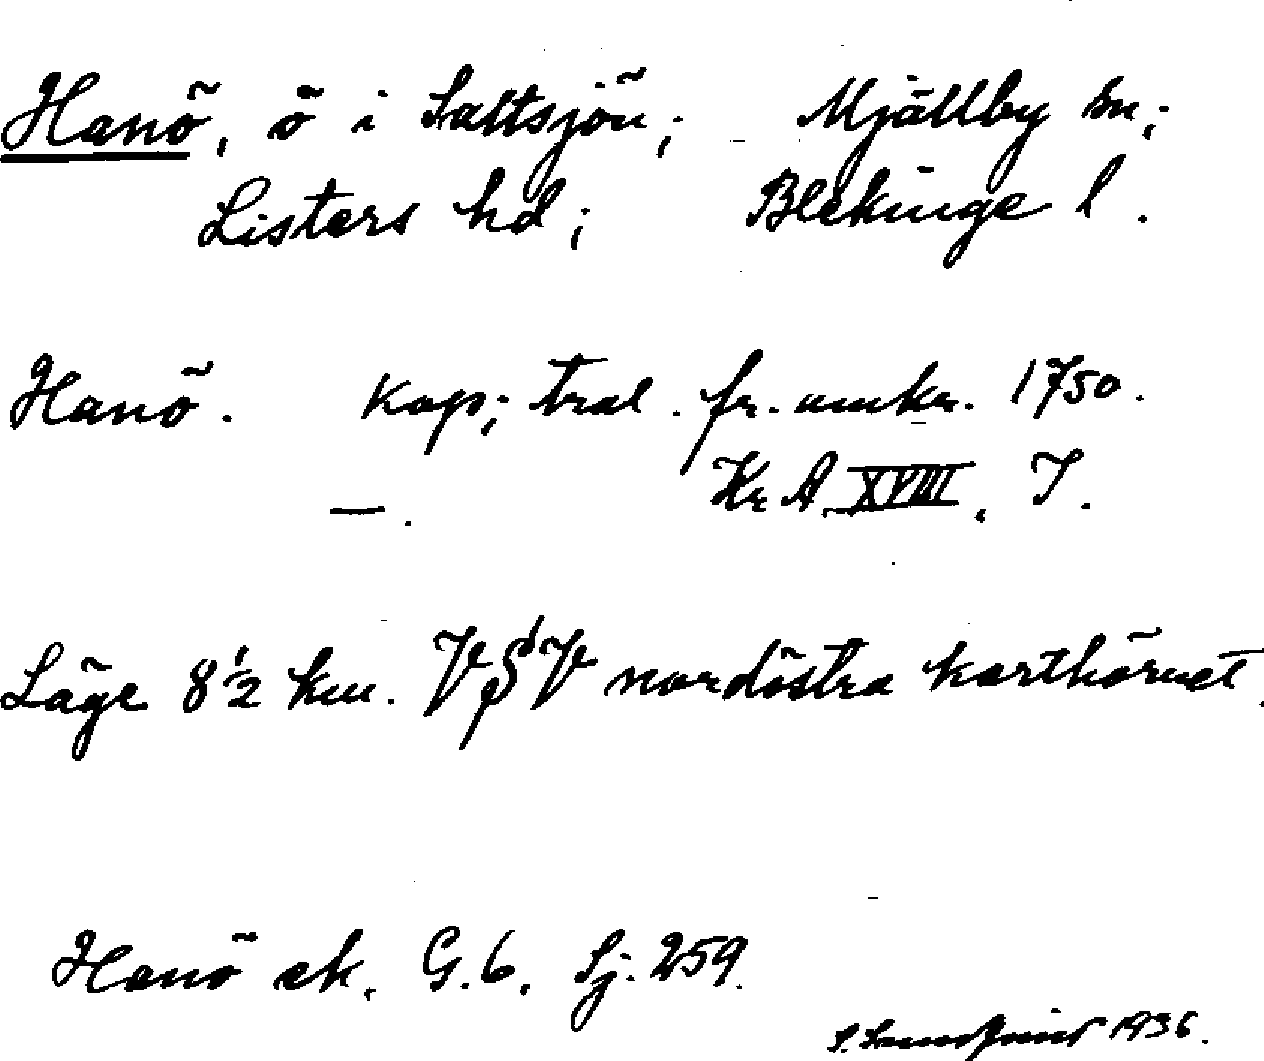 Hanö, ö i Saltsjön; Mjällby sn;
Listers hd; Blekinge l.
Hanö. Kop; tral. fr. omkr. 1750.
—. Kr A XVIII. 7.
Läge 8 1/2 km. VSV nordöstra karthörnet.
Hanö ek. G. b. Sj. 259.
S. 1936.